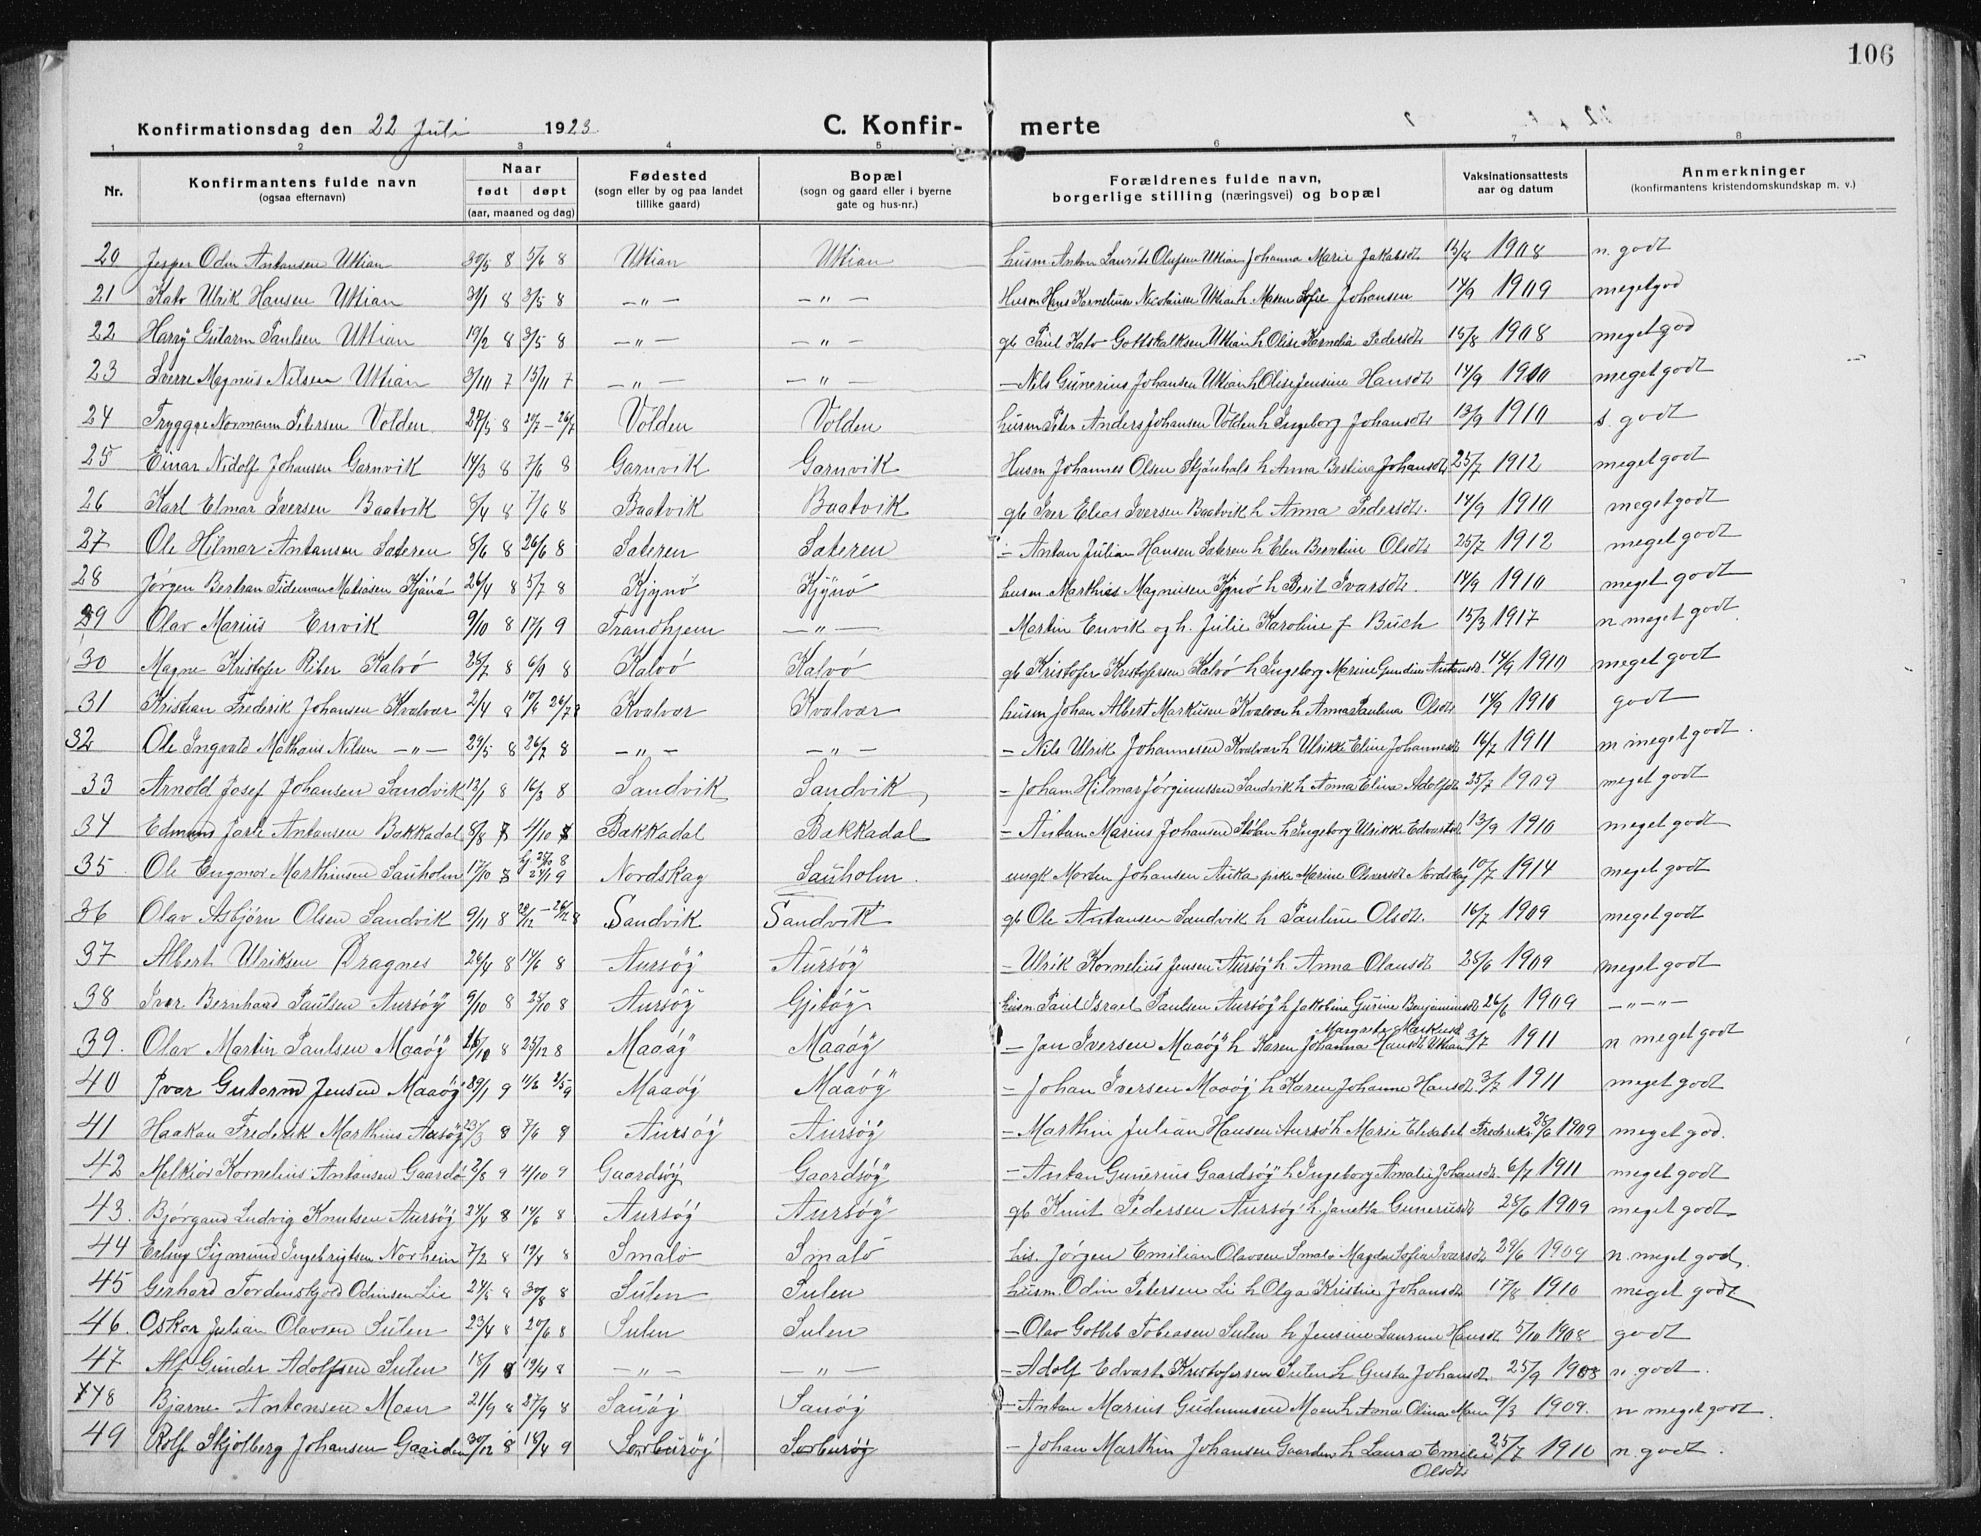 106
Konfirmationsdag den 22 Juli 1923. C. Konfir- merte
1 2 3 4 5 6 7 8
Nr. Konfirmantens fulde navn (ogsaa efternavn) Naar født døpt (aar, maaned og dag) Fødested (sogn eller by og paa landet tillike gaard) Bopæl (sogn og gaard eller i byerne gate og hus-nr.) Forældrenes fulde navn, borgerlige stilling (næringsvei) og bopæl Vaksinationsattests aar og datum Anmerkninger (konfirmantens kristendomskundskap m. v.)
20 Jesper Odin Antonsen Uttian 30/5 8 5/6 8 Uttian Uttian husm Anton Laurits Olufsen Uttian Johanna Marie Jakobsdt 13/8 1908 n. godt
21 Kato Ulrik Hansen Uttian 31/1 8 3/5 8 —"— —"— Husm Hans Kornelius Nicolaisen Uttian h Maren Sofie Johansen 14/9 1909 megetgod
22 Harry Gutorm Paulsen Uttian 19/2 8 3/5 8 —"— —"— gb Paul Kato Gottskalksen Uttian h Olise Kornelia Pedersdt 15/8 1908 meget god
23 Sverre Magnus Nilsen Uttian 3/10 7 15/11 7 —"— —"— —Nils Gunerius Johansen Uttian h Olise Jensine Hansdt 14/9 1910 megetgodt
24 Trygge Normann Petersen Volden 27/5 8 21/7 — 26/7 Volden Volden husm Peter Anders Johansen Volden h Ingeborg Johansdt 13/9 1910 s. godt
25 Einar Nidolf Johansen Garnvik 14/3 8 7/6 8 Garnvik Garnvik Husm Johannes Olsen Skjønhals h Anna Bestine Johansdt 25/7 1912 megetgodt
26 Karl Elmar Iversen Baatvik 8/4 8 7/6 8 Baatvik Baatvik gb Iver Elias Iversen Baatvik h Anna Pedersdt. 14/9 1910 megetgodt
27 Ole Hilmar Antonsen Sateren 8/6 8 26/6 8 Sateren Sateren — Anton Julian Hansen Sateren h Elen Berntine Olsdt 25/7 1912 megetgodt
28 Jørgen Bertran Tideman Matiasen Kjønø 26/4 8 5/7 8 Kjynø Kjynø husm Marthies Magnusen Kjynø h Berit Ivarsdt. 14/9 1910 meget godt
29 Olav Marius Envik 9/10 8 17/1 9 Trondhjem —"— Martin Envik og h. Julie Karoline f Buch 15/3 1917 n meget godt
30 Magne Kristofer Riber Kalvø 28/7 8 6/9 8 Kalvø Kalvø gb Kristofer Kristofersen Kalvø h Ingeborg Merine Gundine Antonsdt. 14/9 1910 meget godt
31 Kristian Frederik Johansen Kvalvær 2/4 8 10/6 26/7 8 Kvalvær Kvalvær husm Johan Albert Markusen Kvalvær h Anna Paulina Olsdt 14/9 1910 godt
32 Ole Ingvald Mathais Nilsen —"— 29/5 8 26/7 8 —"— —"— — Nils Ulrik Johannesen Kvalvær h Ulrikke Eline Johannesdt 16/7 1911 m meget godt.
33 Arnold Josef Johansen Sandvik 12/1 8 16/3 8 Sandvik Sandvik — Johan Hilmar Jørginussen Sandvik h Anna Eline Adolfsdt 25/7 1909 meget godt
34 Edmund Jarle Antonsen Bakkadal 8/8 4/10 Bakkadal Bakkadal — Anton Marius Johansen Stølan h Ingeborg Ulrikke Edvartsdt 13/9 1910 meget godt
35. Ole Engmor Marthinsen Sauholm 17/10 8 hj 25/10 8 24/1 9 Nordskag Sauholm. ungk Morten Johansen Auka pike Marine Olversdt Nordskag 10/7 1914 meget godt
36 Olav Asbjørn Olsen Sandvik 9/11 8 Sandvik Sandvik gb Ole Antonsen Sandvik h Pauline Olsdt. 16/7 1909 meget godt
37 Albert Ulriksen Dragnes 26/4 8 14/6 8 Aursøy Aursøy — Ulrik Kornelius Jensen Aursøy h. Anna Olausdt 28/6 1909 meget godt
38 Iver Bernhard Paulsen Aursøy 9/10 8 25/10 8 Aursøy Gjetøy husm. Paul Israel Paulsen Aursøy h Jakobine Gurine Benjaminsdt 26/6 1909 —"—"—
39. Olav Martin Paulsen Maaøy 16/10 8 25/12 8 Maaøy Maaøy — Jan Iversen Maaøy h Karen Johanna Hansdt Uttian Margrete Markusd 3/7 1911 n meget godt
40 Ivar Gutorm Jensen Maaøy 29/1 9 Maaøy Maaøy — Johan Iversen Maaøy h Karen Johanne Hansdt 3/7 1911 meget godt
41 Haakon Frederik Marthius Aursøy 23/3 8 7/6 8 Aursøy Aursøy — Marthin Julian Hansen Aursø h Marie Elisabet Frederiks 28/6 1909 meget god.
42 Melkior Kornelius Antonsen Gaardø 2/8 9 4/10 9 Gaardsøy Gaardsøy — Anton Gunerius Gaardsøy h Ingeborg Amalie Johansdt. 6/7 1911 meget godt
43. Bjørgand Ludvig Knutsen Aursøy 24/4 8 14/6 8 Aursøy Aursøy gb Knut Pedersen Aursøy h. Janetta Gunerusdt 28/6 1909 meget godt
44 Erling Sigmund Ingebrigtsen Norheim 7/2 8 19/4 8 Smalø Smalø his. Jørgen Emilian Olavsen Smalø Magda Sofia Ivarsdt 29/6 1909 n. meget god
45 Gerhard Tordenskjold Odinsen Lie 24/5 8 30/8 8 Sulen Sulen husm. Odin Petersen Li h Olga Kristine Johansdt 17/8 1910 meget godt
46. Oskar Julian Olavsen Sulen 23/4 8 20/6 8 Sulen Sulen — Olav Gotleb Tobiasen Sulen h Jensine Laurine Hansdt 5/10 1908 godt
47 Alf Gunder Adolfsen Sulen 18/1 8 19/4 8 —"— —"— —Adolf Edvart Kristofersen Sulen h Gusta Johansdt. 25/9 1908 n. godt.
48 Bjarne Antonsen Moen 21/9 8 27/9 8 Sauøy Sauøy — Anton Marius Gudmunsen Moen h Anna Olina Moen 9/3 1909. n meget godt.
49 Rolf Skjolberg Johansen Gaarden 30/12 8 18/4 9 Sorburøy Sorburøy — Johan Marthin Johansen Gaarden h Laura Emelie Olsdt 25/7 1910 n. godt.